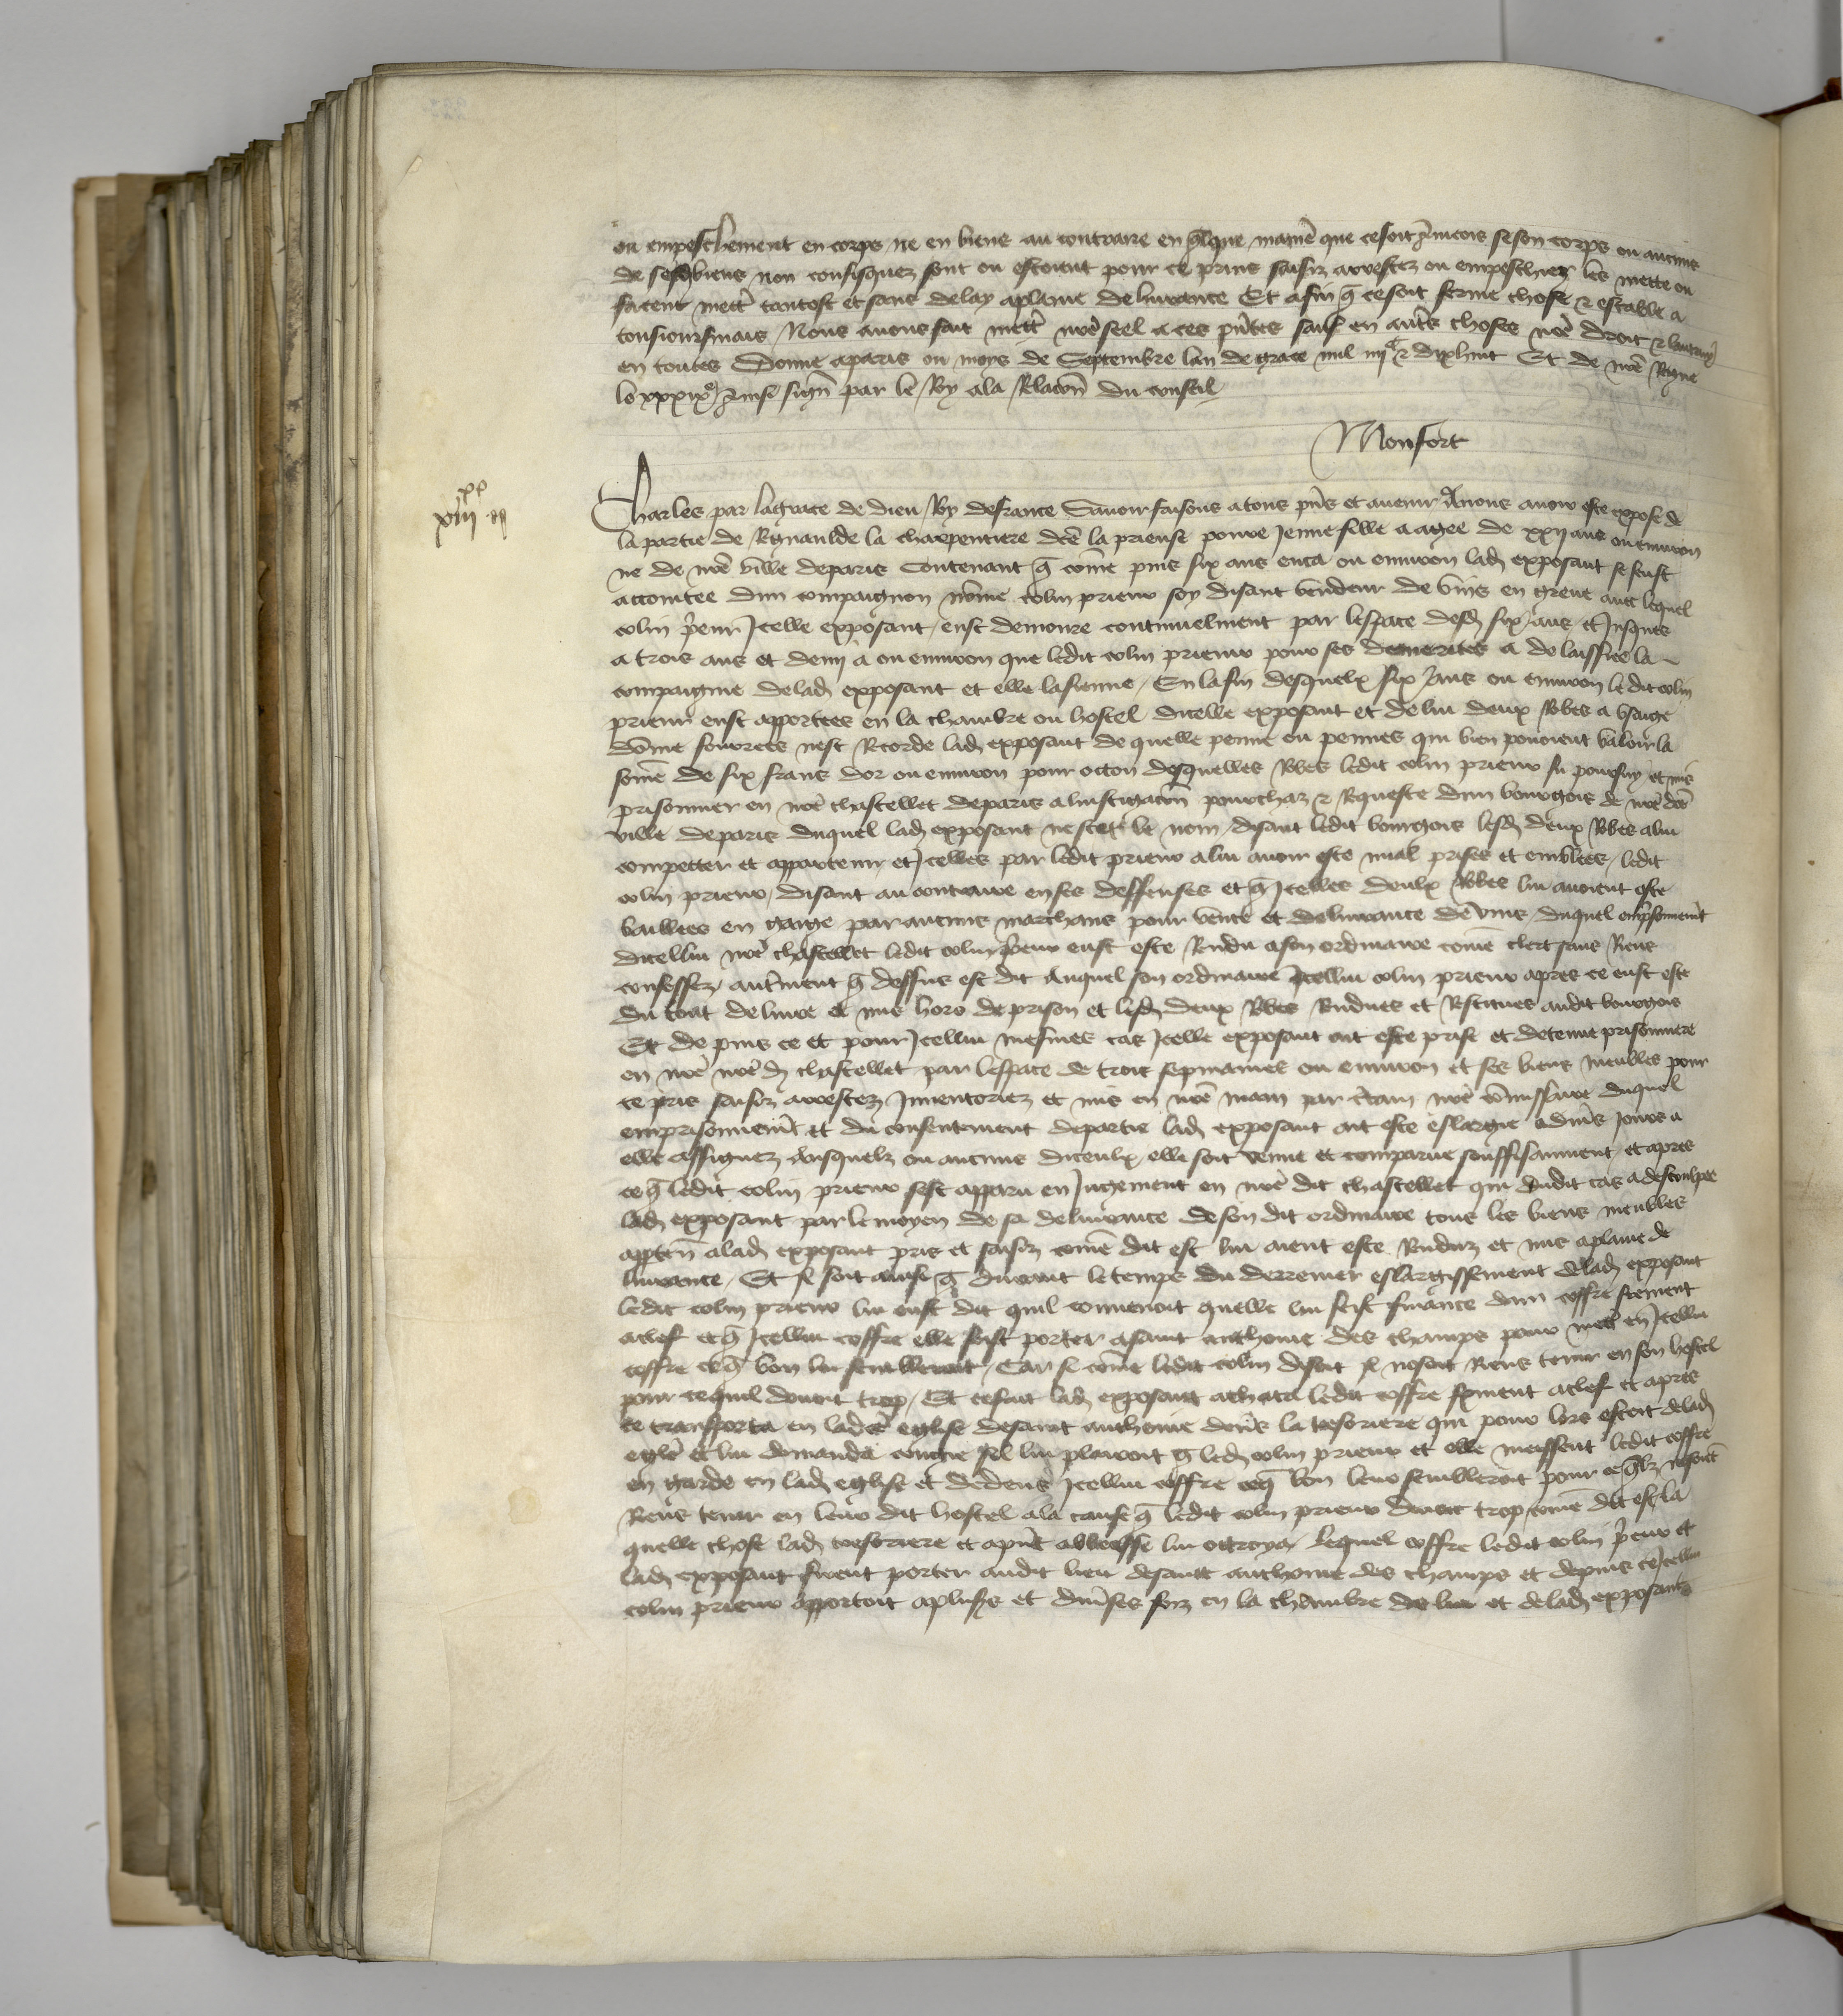 ou empeschement en corps ne en biens au contraire en q̃lque maniẽ que ce soit Aincois se son corps ou aucuns
de sesd biens non confisquez sont ou estoient pour ce prins saisiz arrestez ou empeschiez les mette ou
facent mett̃ tantost et sans delay a plaine deliurance Et afin q̃ ce soit ferme chose & estable a
tousiourzmais Nous auons fait mett̃ nr̃e seel a ces pñtes sauf en aut̃s choses nr̃e droit & lautruy
en toutes Donne a paris ou moys de Septembre lan de grace mil iiijc & dixhuit Et de nr̃e Regne
le xxxixe Ainsi signe par le Roy a la Relacõn du conseil
Monfort
xx
xiiij iij
Charles par la grace de dieu Roy de france Sauoir faisons a tous pñs et auenir A nous auoir este expose de
la partie de Regnaulde la charpentiere dc̃e la prieuse poure Jeune fille aagee de xxij ans ou enuiron
nee de nr̃e ville de paris Contenant q̃ com̃e puis six ans enca ou enuiron lad exposant se feust
accointee dun compaignon nom̃e colin prieur soy disant vendeur de vins en greue auec lequel
colin p̃eur Icelle exposant eust demoure continuelment par lespace desd six ans et Jusques
a trois ans et demj a ou enuiron que ledit colin prieur pour ses demerites a delaissiee la
compaignie de lad exposant et elle la sienne En la fin desquelx six Ans ou enuiron ledit colin
prieur eust apportees en la chambre ou hostel dicelle exposant et de lui deux Robes a vsaige
dom̃e fourrees nest Recorde lad exposant de quelle penne ou pennes qui bien pouoient valoir la
som̃e de six frans dor ou enuiron pour occoñ desquelles Robes ledit colin prieur fu poursuy et mis
prisonnier en nr̃e chastellet de paris a linstigacõn pourchaz & Requeste dun bourgois de nr̃e dc̃e
ville de paris duquel lad exposant ne scet le nom disant ledit bourgois lesd deux Robes a lui
competter et appartenir et Icelles par ledit prieur a lui auoir este mal prises et emblees ledit
colin prieur disant au contraire en ses deffenses et q̃ Icelles deulx Robes lui auoient este
baillees en gaige par aucuns marchans pour vente et deliurance de vins duquel emp̃sonnem̃t
dicellui nr̃e chastellet ledit colin p̃eur eust este Rendu a son ordinaire com̃e clerc sans Riens
confesser aut̃ment q̃ dessus est dit Auquel son ordinaire Icellui colin prieur apres ce eust este
du tout deliure et mis hors de prison et lesd deux Robes Rendues et Restitues audit bourgois
Et depuis ce et pour Icellui mesmes cas Icelle exposant ait este prise et detenue prisonniere
en nr̃e nr̃e d chastellet par lespace de trois sepmaines ou enuiron et ses biens meubles pour
ce pris saisiz arrestez Inuentoriez et mis en nr̃e main par c̃tain nr̃e com̃issaire duquel
emprisonnem̃t et du consentement de partie lad exposant ait este eslargie a diũs Jours a
elle assignez Ausquelz ou aucuns diceulx elle soit venue et comparue souffisanment et apres
ce q̃ ledit colin prieur sest apparu en Jugement en nr̃e dit chastellet qui dudit cas a descoulpee
lad exposant par le moyen de sa deliurance de son dit ordinaire tous les biens meubles
apptẽn a lad exposant pris et saisiz com̃e dit est lui aient este Renduz et mis a plaine de
liurance Et Il soit ainsi q̃ durant le temps du derrenier eslargissement de lad exposant
ledit colin prieur lui eust dit quil conuenoit quelle lui feist finance dun coffre fermant
a clef et q̃ Icellui coffre elle feist porter a saint anthoine des champs pour mett̃ en Icellui
coffre ce q̃ bon lui sembleroit Car si com̃e ledit colin disoit Il nosoit Riens tenir en son hostel
pour ce quil deuoit trop Et ce fait lad exposant achata ledit coffre fermant a clef et apres
ce transporta en ladc̃e eglise de saint anthoine deũs la tresoriere qui pour lors estoit de lad
egl̃e et lui demanda congie sil lui plairoit q̃ led colin prieur et elle meissent ledit coffre
en garde en lad eglise et dedens Icellui coffre ce q̃ bon leur sembleroit pour ce q̃lz nosoient
Riens tenir en leur dit hostel a la cause q̃ ledit colin prieur deuoit trop com̃e dit est la
quelle chose lad tresoriere et a pñt abbeesse lui ottroya lequel coffre ledit colin p̃eur et
lad exposant firent porter audit lieu de saint anthoine des champs et depuis ce Icellui
colin prieur apportoit a plus's et diũses foiz en la chambre de lui et de lad exposante